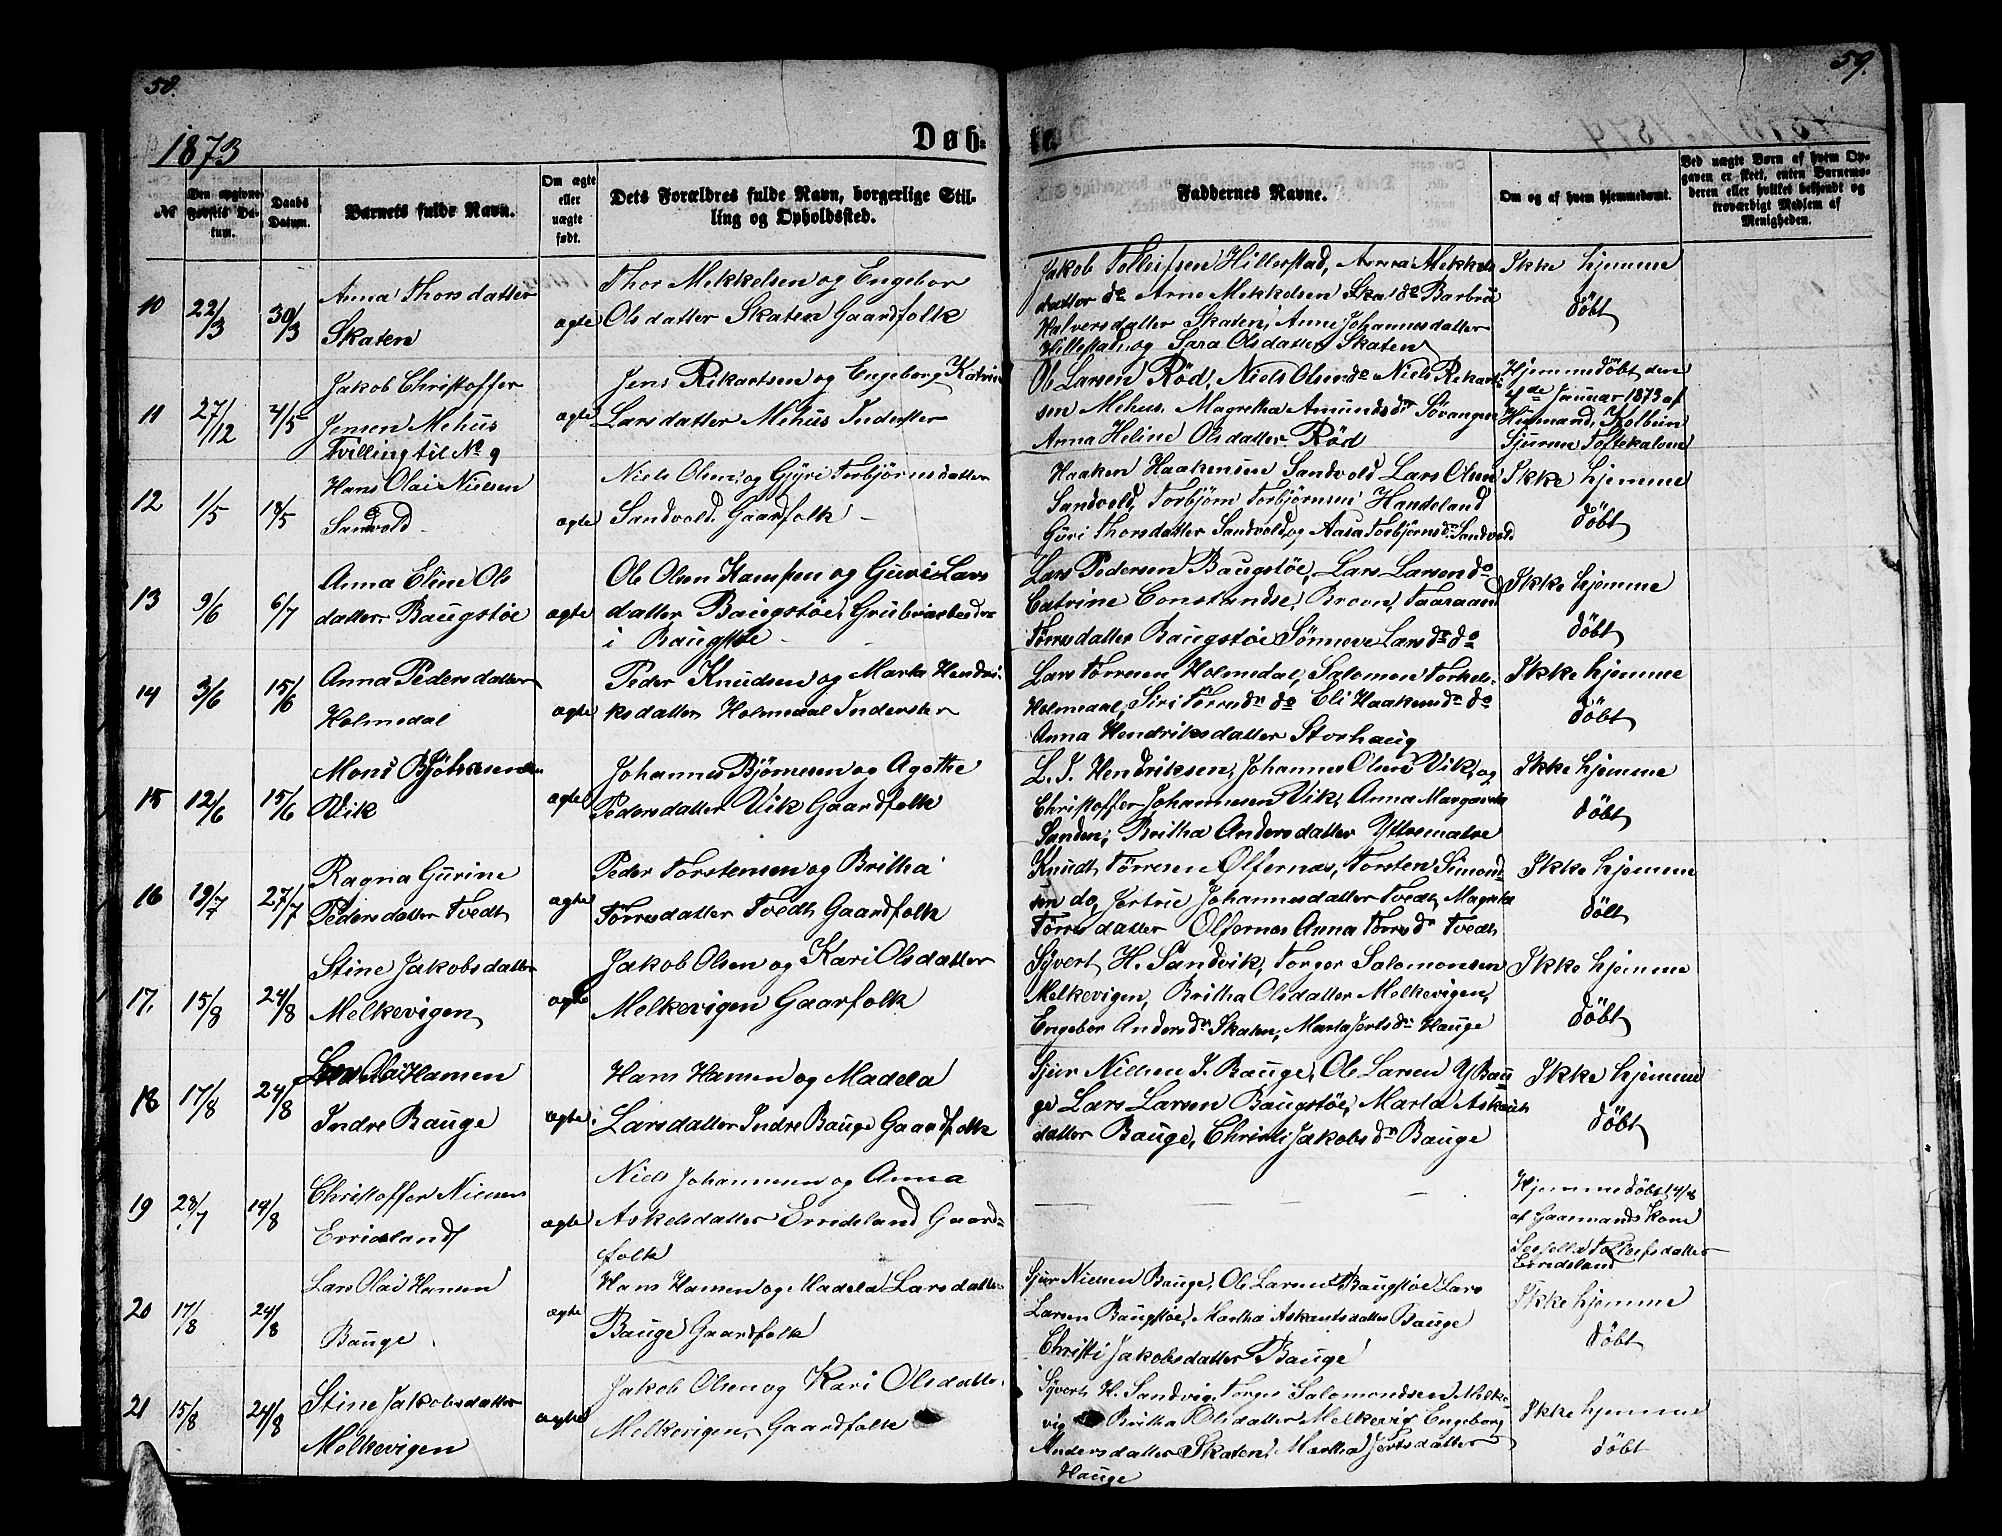 58.
59.
1873
Døb-
te.
№
Den opgivne Fødsels Datum.
Daabs Datum.
Barnets fulde Navn.
Om ægte eller uægte født.
Dets Forældres fulde Navn, borgerlige Stilling og Opholdssted.
Faddernes Navne.
Om og af hvem hjemmedøbt.
Ved uægte Børn af hvem Opgaven er skeet, enten Barnemoderen eller hvilket bekjendt og troværdigt Medlem af Menigheden.
10 22/3 30/3
Anna Thorsdatter
Skaten
ægte
Thor Mekkelsen og Engebor
Olsdatter Skaten Gaardfolk
Jakob Tollufsen Hillestad, Anna Mekkels
datter do Arne Mekkelsen Skat do Barbru
Halversdatter Skaten, Anne Johannesdatter
Hillestad, og Sara Olsdatter Skaten
Ikke hjemme
döbt
11 27/12 4/5
Jakob Christoffer
Jensen Mehus
Tvilling til No 9
ægte
Jens Rikartsen og Engeborg Katrin
Larsdatter Mehus Inderster
Ol Larsen Röd, Niels Olsen do Niels Rekart
sen Mehus. Magretha Amundsdr Sövangen
Anna Heline Olsdatter Röd
Hjemmedöbt den
4de Januar 1873 af
Husmand, Kolbein
Sjursen Toftekalven
12 1/5 18/5
Hans Olai Nielsen
Sandvold
ægte
Niels Olsen og Gjyri Torbjörnsdatter
Sandvold. Gaardfolk
Haaken Haakensen Sandvold Lars Olsen
Sandvold, Torbjörn Torbjörnsen Handeland
Guri Thorsdatter Sandvold, og Aasa Torbjörnsd. Sandvold
Ikke hjemme
döbt
13 9/6 6/7
Anna Eline Ols
datter Baugstöe
ægte
Ole Olsen Kampen og Guri Lars
datter Baugstöe Grubearbeider
i Baugstöe
Lars Pedersen Baugstöe, Lars Larsen do
Catrine Constandse, Broon, Taaraand
Törresdatter Baugstöe Sönneve Larsdr do
Ikke hjemme
döbt
14 3/6 15/6
Anna Pedersdatter
Holmedal
ægte
Peder Knudsen og Marta Hendri-
ksdatter Holmedal Inderster
Lars Törresen Holmedal, Salomon Torkels-
Holmedal, Siri Törresdr do Eli Haakensdr do
Anna Hendriksdatter Storhaug
Ikke hjemme
döbt
15 12/6 15/6
Mons
Vik
ægte
Johannes Björnesen og Agothe
Pedersdatter Vik Gaardfolk
L. J. Hendriksen, Johannes Olsen Vik, og
Christoffer Johannesen Vik, Anna Margaretha
Sanden, Britha Andersdatter Yttrematre
Ikke hjemme
döbt
16 19/7 27/7
Ragna Gurine
Pedersdatter Tvedt
ægte
Peder Torstensen og Britha
Törresdatter Tvedt Gaardfolk
Knudt Törresen Ölfernes, Torsten Simond-
sen do, Jertrue Johannesdatter Tvedt, Magreta
Törresdatter Ölfernes Anna Törresdr Tvedt
Ikke hjemme
döbt
17. 15/8 24/8
Stine Jakobsdatter
Melkevigen
ægte
Jakob Olsen og Kari Olsdatter
Melkevigen Gaarfolk
Syvert H. Sandvik, Torger Salomonsen
Melkevigen, Britha Olsdatter Melkevigen,
Engebor Andersdr Skaten, Marta Jertsdr Hauge
Ikke hjemme
döbt
18 17/8 24/8
Lars Olai Hansen
Indre Bauge
ægte
Hans Hansen og Madela
Larsdatter Indre Bauge Gaardfolk
Sjur Nielsen I. Bauge, Ole Larsen Y Bau
ge Lars Larsen Baugstöe, Marta Askauts
datter Bauge, Christi Jakobsdr Bauge
Ikke hjemme
döbt
19 23/7 14/8
Christoffer Nielsen
Erridsland
ægte
Niels Johannesen og Anna
Askelsdatter Erridsland Gaard-
folk
Hjemmedöbt 14/8
af Gaarmands Kone
Tollefsdatter
Erredsland
20 17/8 24/8
Lars Olai Hansen
Bauge
ægte
Hans Hansen og Madela Larsdatter
Bauge Gaardfolk
Sjur Nielsen Bauge, Ole Larsen Baugstöe Lars
Larsen Baugstöe, Martha Askautsdatter Bauge
Christi Jakobsdatter Bauge
Ikke hjemme
döbt
21 15/8 24/8
Stine Jakobsdatter
Melkevigen
ægte
Jakob Olsen og Kari Olsdatter
Melkevigen, Gaardfolk
Syvert H. Sandvig, Torger Salomondsen Melke-
vig Britha Olsdatter Melkevig Engeborg
Andersdatter Skaten, Martha Jertsdatter
Hauge
Ikke hjemme
döbt